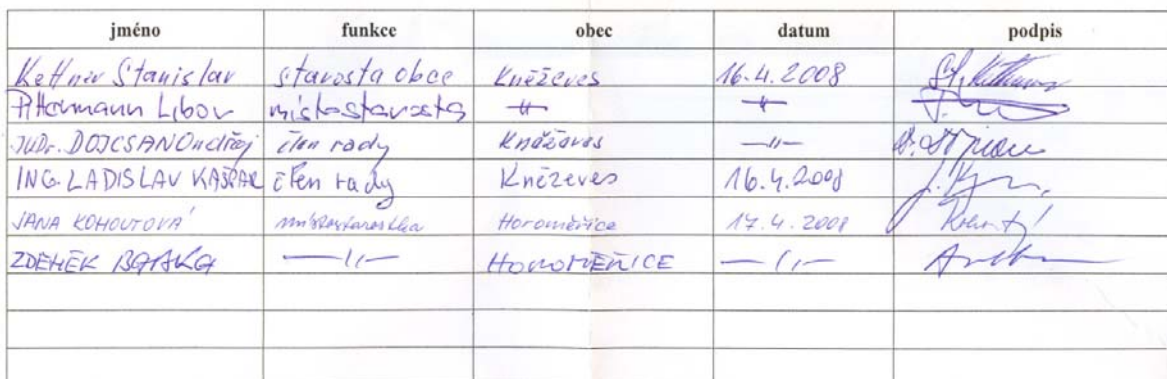 jméno funkce obec datum podpis
Kettner Stanislav starosta obce Kněževes 16.4.2008
Libor místostarosta -"- -"-
JUDr. DOJCSAN Ondřej člen rady Kněževes -"-
ING. LADISLAV KAŠPAR člen rady Kněževes 16.4.2008
JANA KOHOUTOVÁ místostarostka Horoměřice 17.4.2008
ZDENĚK -"- HOROMĚŘICE -"-